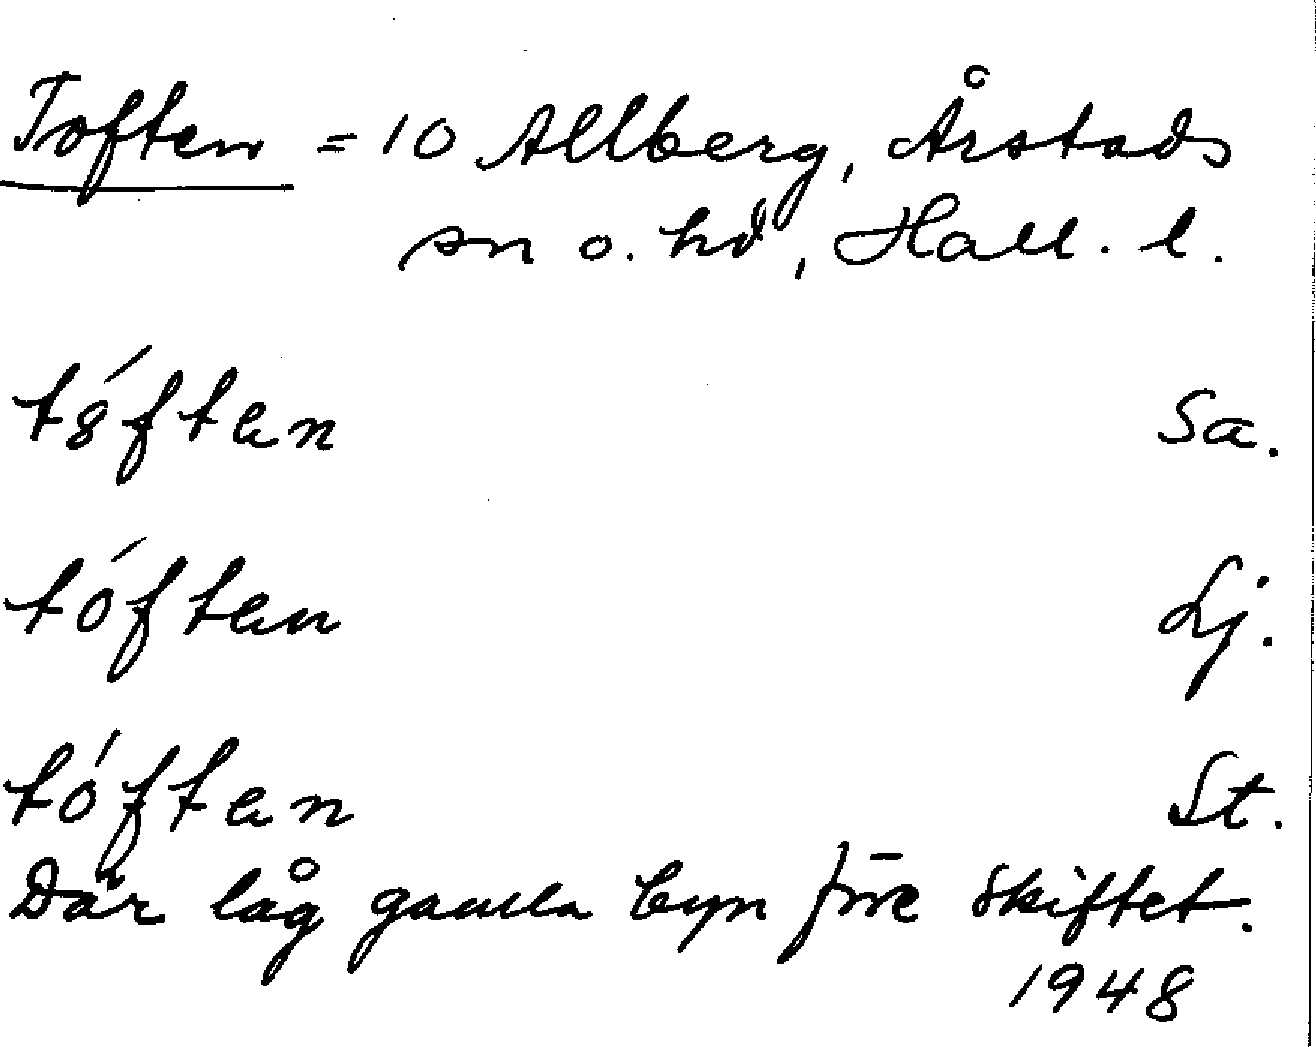 Toften = 10 Allberg, Årstads
sn o. hd, Hall. l.
tóften Sa.
tóften Lj.
tóften St.
Där låg gamla byn före skiftet.
1948